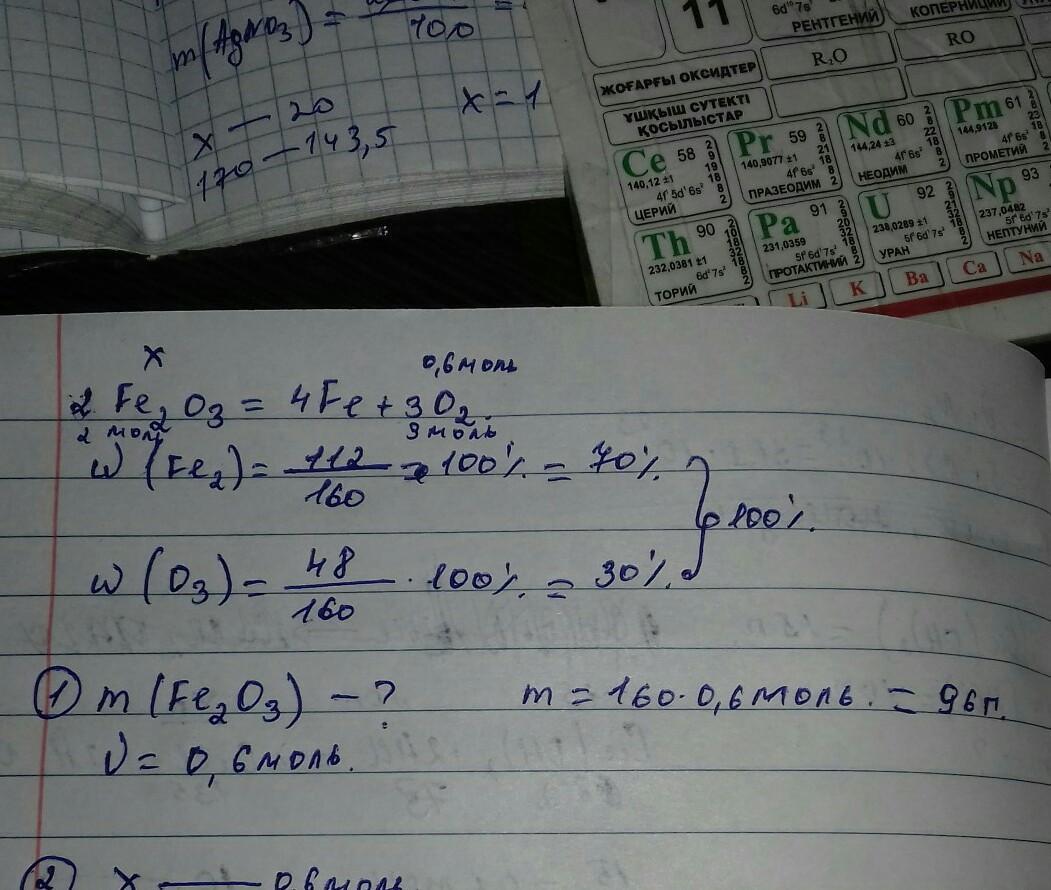 m(AgNO₃) = 100 =
x — 20 x = 1
170 — 143,5
11
6d¹⁰7s¹
РЕНТГЕНИЙ
КОПЕРНИЦИЙ
ЖОҒАРҒЫ ОКСИДТЕР
R₂O
RO
ҰШҚЫШ СУТЕКТІ
ҚОСЫЛЫСТАР
Ce 58
140,12 ±1
4f¹5d¹6s²
ЦЕРИЙ
Pr 59
140,9077 ±1
4f³6s²
ПРАЗЕОДИМ
Nd 60
144,24 ±3
4f⁴6s²
НЕОДИМ
Pm 61
144,9128
4f⁵6s²
ПРОМЕТИЙ
Th 90
232,0381 ±1
6d²7s²
ТОРИЙ
Pa 91
231,0359
5f²6d¹7s²
ПРОТАКТИНИЙ
U 92
238,0289 ±1
5f³6d¹7s²
УРАН
Np 93
237,0482
5f⁴6d¹7s²
НЕПТУНИЙ
Li K Ba Ca Na
x 0,6 моль
2 Fe₂O₃ = 4Fe + 3O₂.
2 моль 3 моль
W (Fe₂) = 112/160 · 100% = 70%
100%.
W (O₃) = 48/160 · 100% = 30%
① m (Fe₂O₃) — ? m = 160 · 0,6 моль. = 96 г.
ν = 0,6 моль.
② x — 0,6 моль